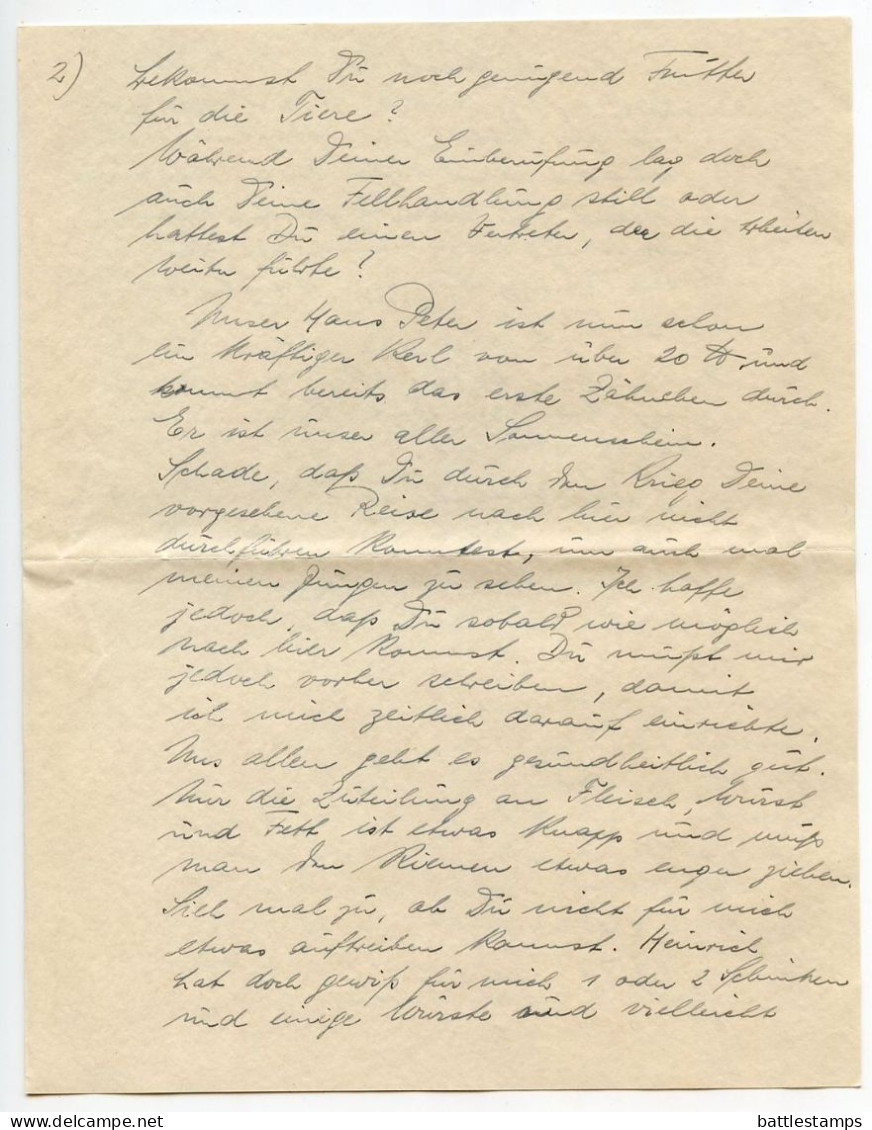 2) bekommst Du noch genügend Futter
für die Tiere?
Während Deiner Einberufung lag doch
auch Deine Fellhandlung still oder
hattest Du einen Vertreter, der die Arbeiten
weiter führte?
Unser Hans Peter ist nun schon
ein kräftiger Kerl von über 20 ℔ und
kommt bereits das erste Zähnchen durch.
Er ist unser aller Sonnenschein.
Schade, daß Du durch den Krieg Deine
vorgesehene Reise nach hier nicht
durchführen konntest, um auch mal
meinen Jungen zu sehen. Ich hoffe
jedoch, daß Du sobald wie möglich
nach hier kommst. Du mußt mir
jedoch vorher schreiben, damit
ich mich zeitlich darauf einrichte.
Uns allen geht es gesundheitlich gut.
Nur die Zuteilung an Fleisch, Wurst
und Fett ist etwas knapp und muß
man den Riemen etwas enger ziehen.
Sieh mal zu, ob Du nicht für mich
etwas auftreiben kannst. Heinrich
hat doch gewiß für mich 1 oder 2 Schinken
und einige Würste und vielleicht
battlestamps